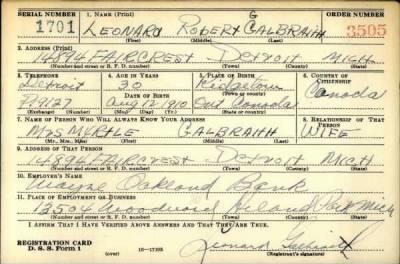 SERIAL NUMBER 1. NAME (Print) ORDER NUMBER
1701 LEONARD ROBERT GALBRAITH 3505
G
(First) (Middle) (Last)
2. ADDRESS (Print)
14894 FAIRCREST DETROIT MICH
(Number and street or R. F. D. number) (Town) (County) (State)
3. TELEPHONE 4. AGE IN YEARS 5. PLACE OF BIRTH 6. COUNTRY OF CITIZENSHIP
Detroit 30 Canada
DATE OF BIRTH (Town or county)
Aug 12 1910 Ont Canada
(Exchange) (Number) (Mo.) (Day) (Yr.) (State or country)
7. NAME OF PERSON WHO WILL ALWAYS KNOW YOUR ADDRESS 8. RELATIONSHIP OF THAT PERSON
MRS MYRTLE GALBRAITH WIFE
(Mr., Mrs., Miss) (First) (Middle) (Last)
9. ADDRESS OF THAT PERSON
14894 FAIRCREST DETROIT MICH
(Number and street or R. F. D. number) (Town) (County) (State)
10. EMPLOYER'S NAME
Wayne Oakland Bank
11. PLACE OF EMPLOYMENT OR BUSINESS
13504 Woodward Highland Park Mich
(Number and street or R. F. D. number) (Town) (County) (State)
I AFFIRM THAT I HAVE VERIFIED ABOVE ANSWERS AND THAT THEY ARE TRUE.
REGISTRATION CARD
D. S. S. Form 1 (over) 16—17105 Leonard Galbraith
(Registrant's signature)